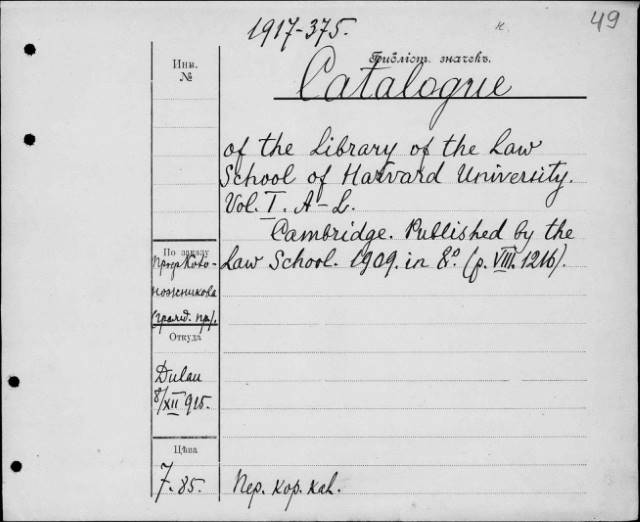 49
1917-375.
Инв.
№
Библіот. значекъ.
Catalogue
of the Library of the Law
School of Harvard University.
Vol. I. A-L.
Cambridge. Published by the
Law School. 1909. in 8º (p. VIII. 1216).
По заказу
(гражд. пр.).
Откуда
Dulau
8/XII 915.
Цѣна
7.85.
Пер. кор. кал.